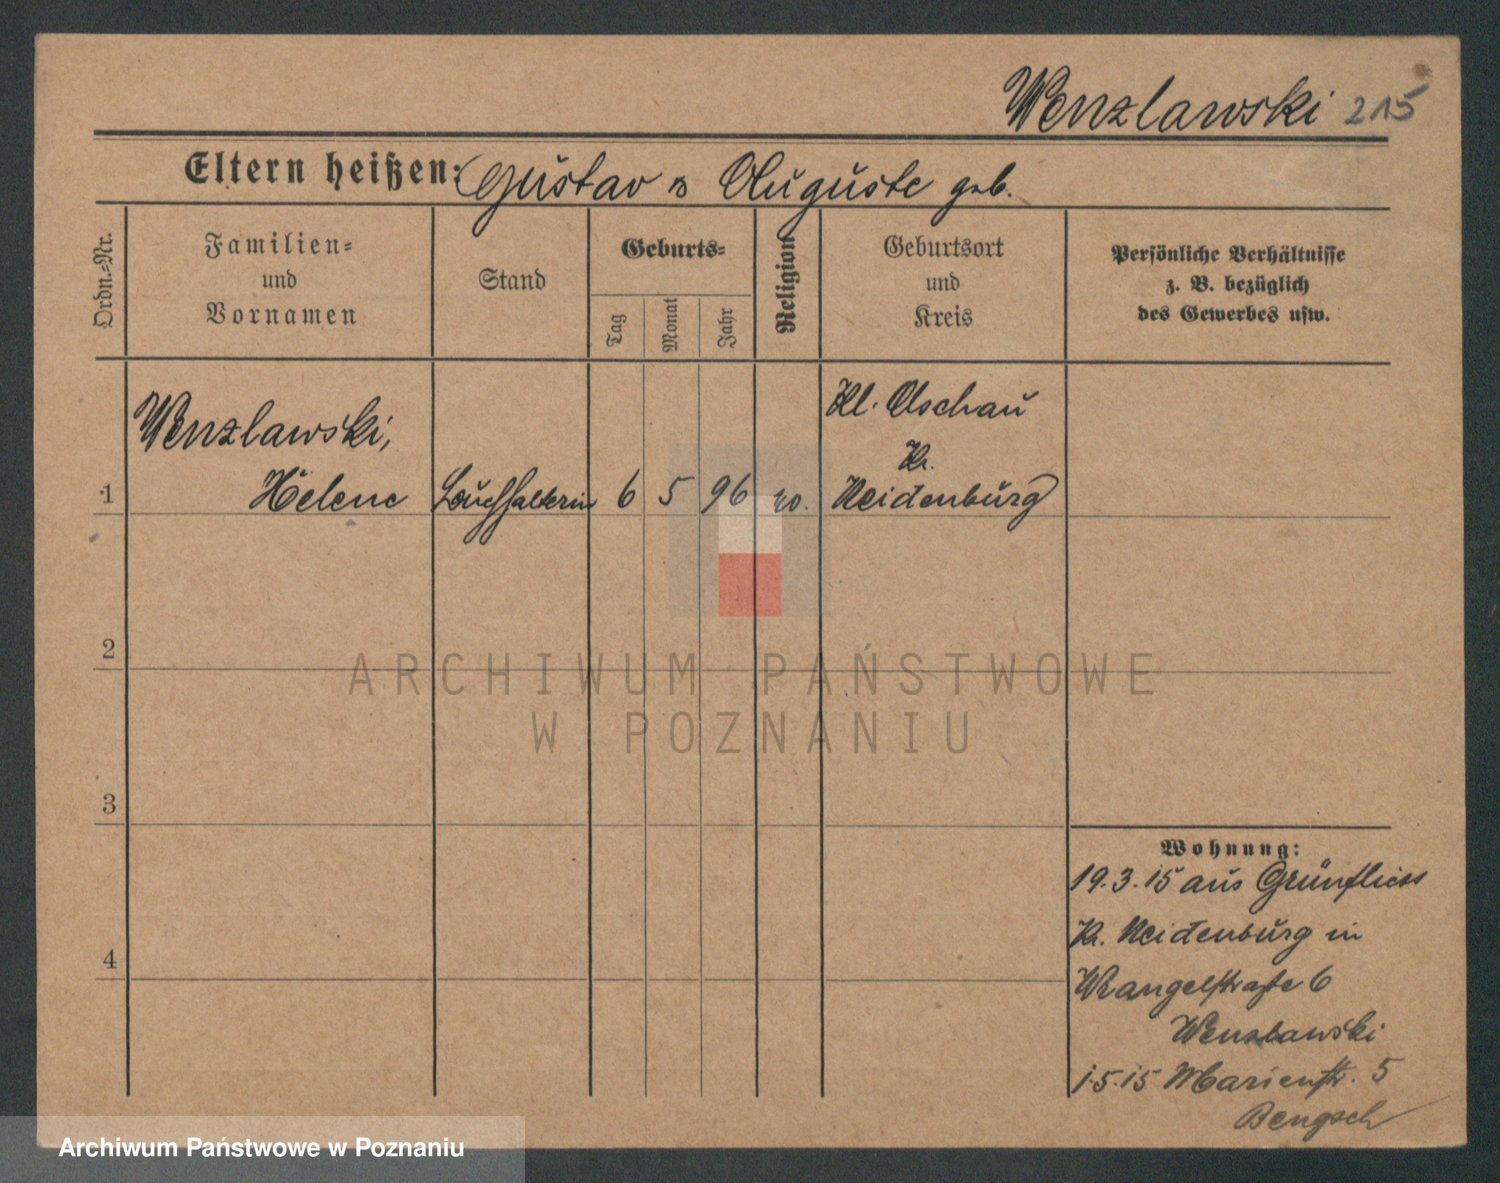 Wenzlawski 215
Eltern heißen: Gustav u Auguste geb.
Ordn.=Nr.
Familien=
und
Vornamen
Stand
Geburts=
Tag
Monat
Jahr
Religion
Geburtsort
und
Kreis
Persönliche Verhältnisse
z. B. bezüglich
des Gewerbes usw.
1
Wenzlawski,
Helene
Buchhalterin
6
5
96
ev.
Kl. Olschau
Kr.
Neidenburg
2
3
4
ARCHIWUM PAŃSTWOWE
W POZNANIU
Wohnung:
19.3.15 aus Grünfliess
Kr. Neidenburg in
Wrangelstraße 6
Wenzlawski
1.5.15 Marienstr. 5
Bengsch
Archiwum Państwowe w Poznaniu